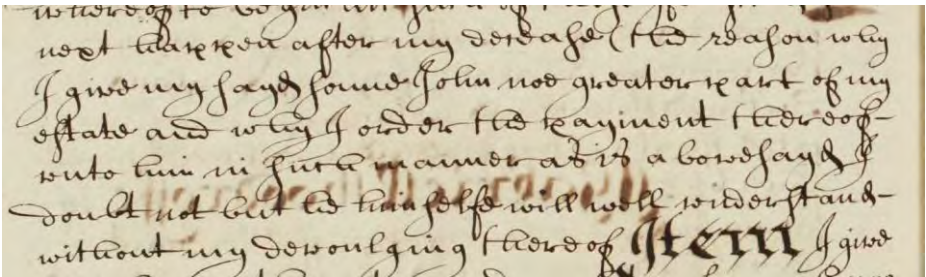 whereof to be
next happen after my decease (the reason why
I give my sayd sonne John noe greater part of my
estate and why I order the payment thereof
unto him in such manner as is abovesayd I
doubt not but he himselfe will well understand
without my devoulging thereof Item I give